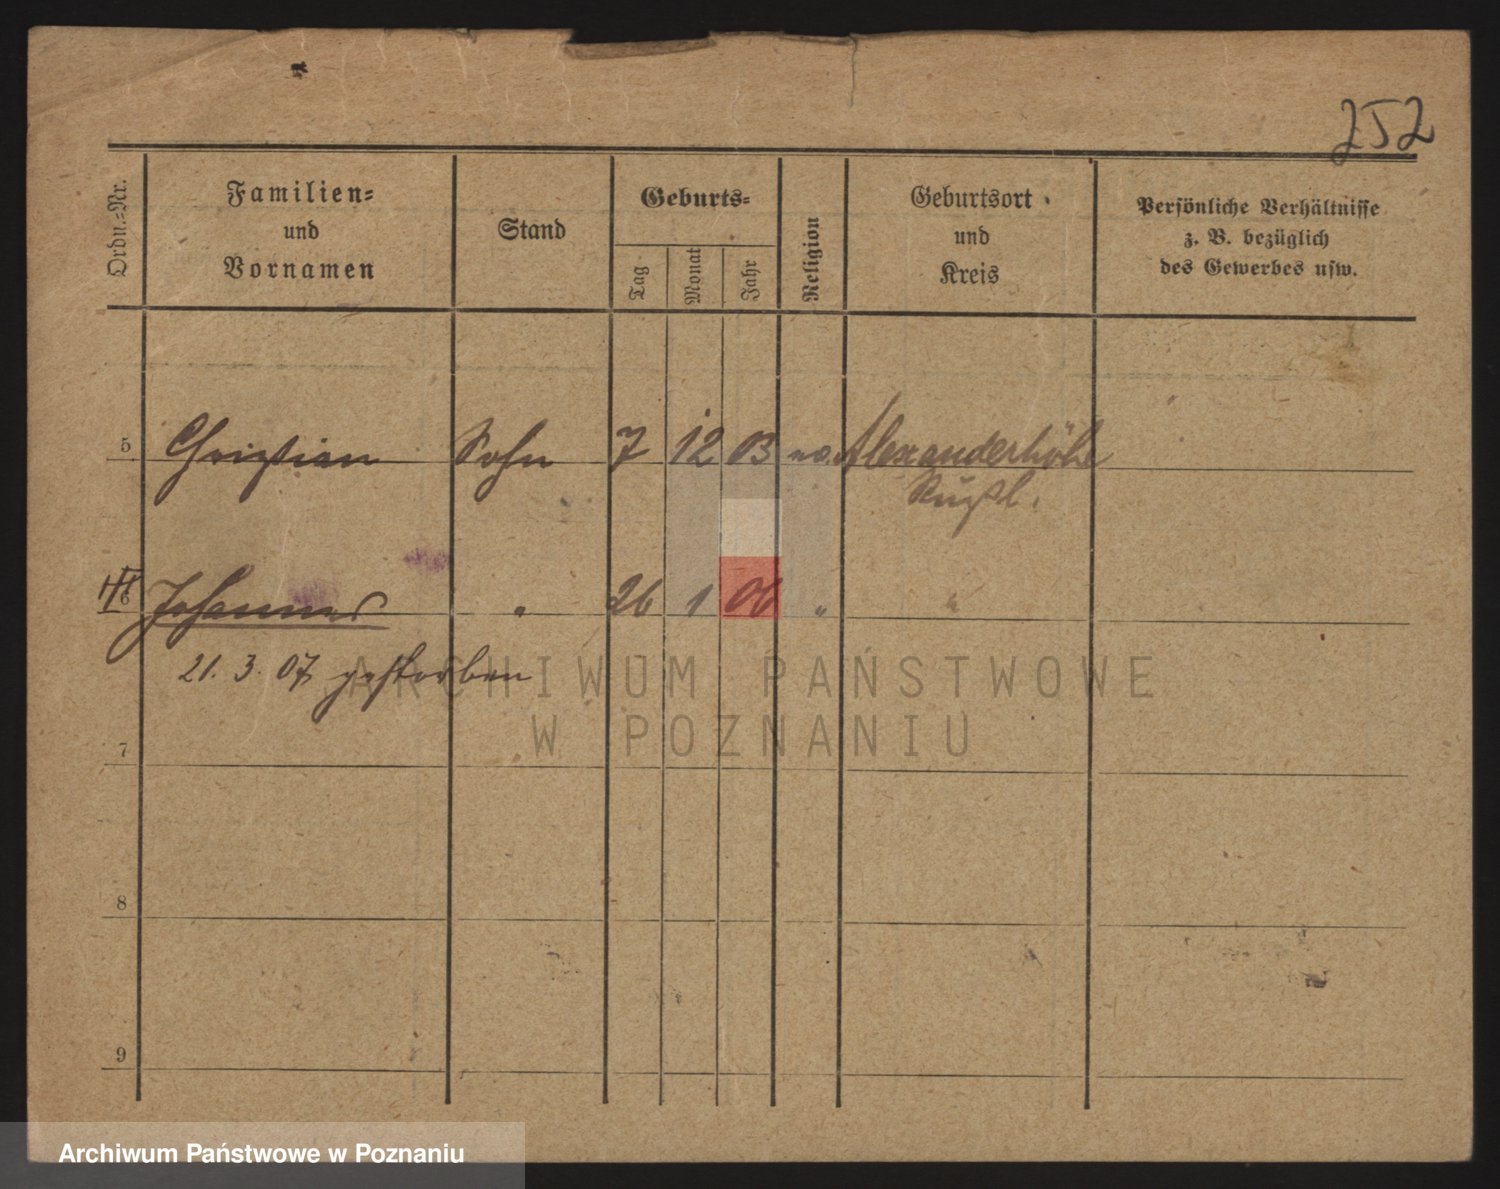 252
Ordn.-Nr.
Familien-
und
Vornamen
Stand
Geburts-
Tag
Monat
Jahr
Religion
Geburtsort
und
Kreis
Persönliche Verhältnisse
z. B. bezüglich
des Gewerbes usw.
5 Christian Sohn 7 12 03 ev. Alexanderhöhe
Rußl.
6 Johannes " 26 1 06 " "
21. 3. 07 gestorben
ARCHIWUM PAŃSTWOWE
W POZNANIU
7
8
9
Archiwum Państwowe w Poznaniu